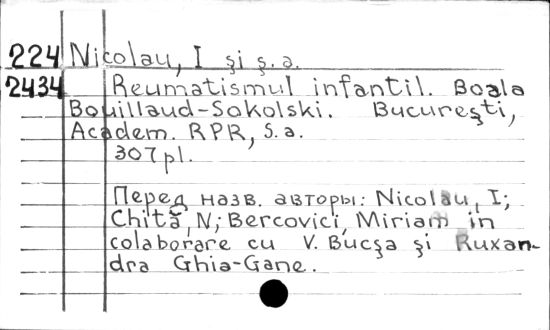 224 Nicolau, I şi ş.a.
2434 Reumatismul infantil. Boala
Bouillaud-Sokolski. Bucureşti,
Academ. RPR, s.a.
307pl.
Перед назв. авторы: Nicolau, I;
Chită, N; Bercovici, Miriam in
colaborare cu V. Bucşa şi Ruxan-
dra Ghia-Gane.